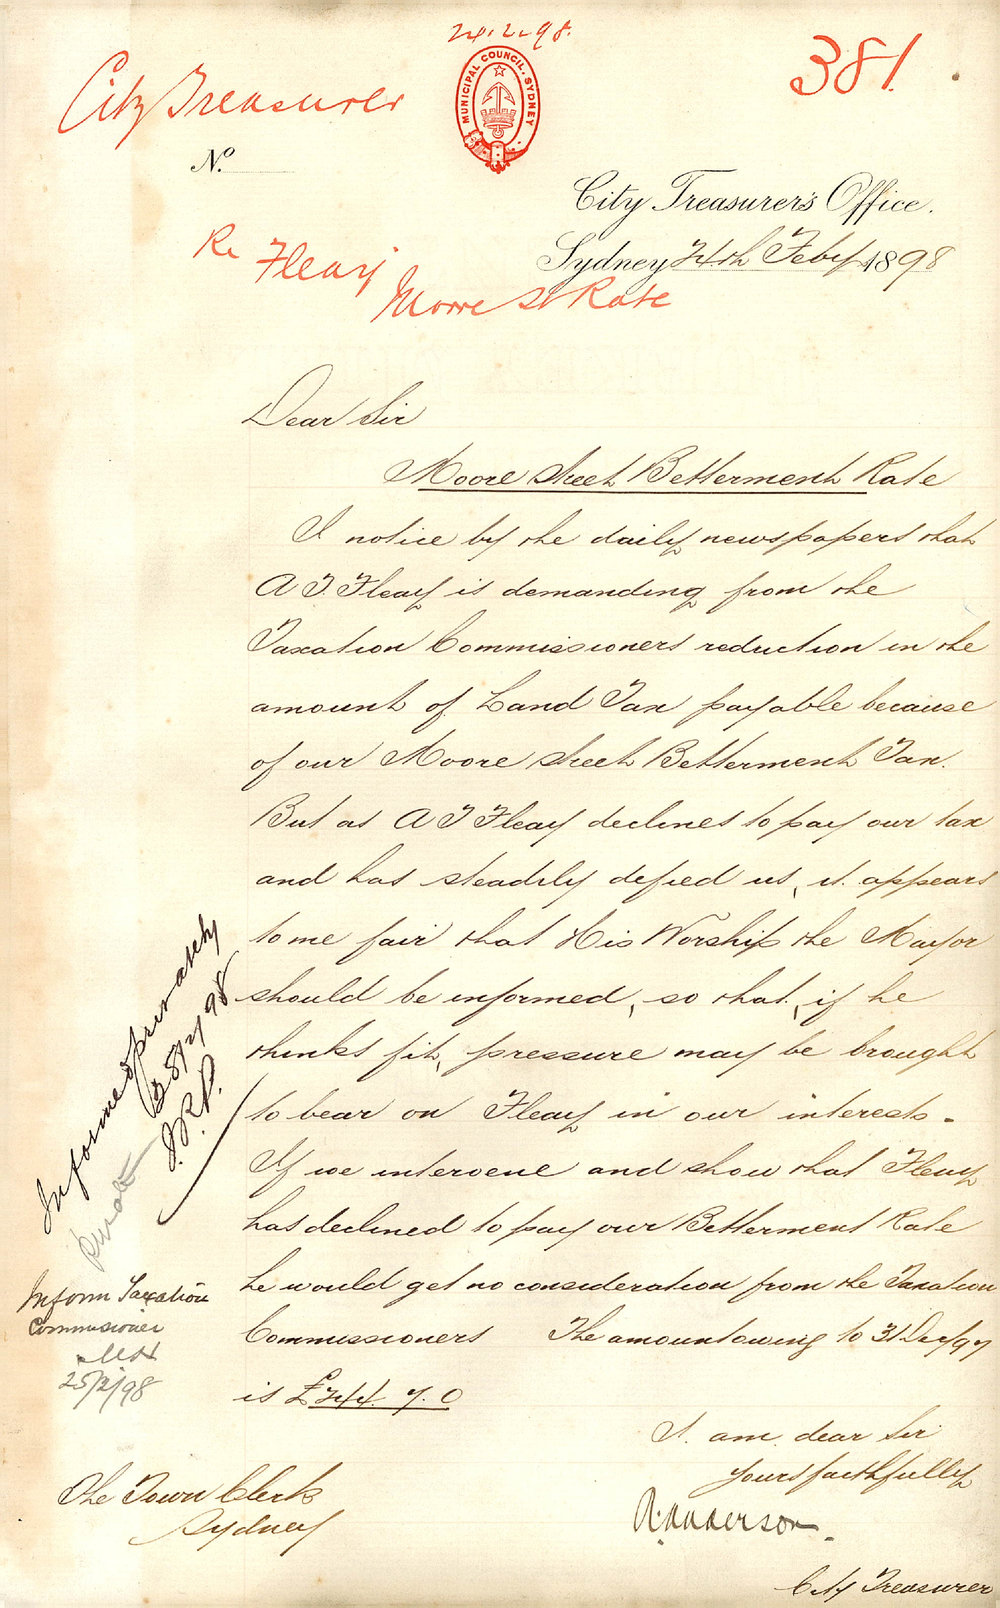 24.2.98.
MUNICIPAL COUNCIL. SYDNEY
381.
City Treasurer
No.
City Treasurer's Office.
Sydney 24th Feby 1898
Re Fleay
Moore St Rate
Dear Sir
Moore Street Betterment Rate
I notice by the daily newspapers that
A J Fleay is demanding from the
Taxation Commissioners reduction in the
amount of Land Tax payable because
of our Moore Street Betterment Tax.
But as A J Fleay declines to pay our tax
and has steadily defied us, it appears
to me fair that His Worship the Mayor
should be informed, so that, if he
thinks fit, pressure may be brought
to bear on Fleay in our interests.
If we intervene and show that Fleay
has declined to pay our Betterment Rate
he would get no consideration from the Taxation
Commissioners The amount owing to 31 Dec/97
is £244. 7. 0
I am dear Sir
Yours faithfully
City Treasurer
The Town Clerk
Sydney
Informed privately
25/2/98
Inform Taxation
Commissioner
25/2/98